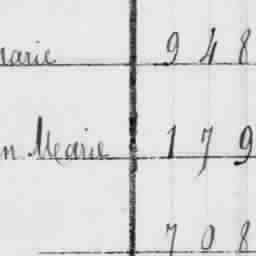 Marie 9 4 8
n Marie 1 7 9
7 0 8